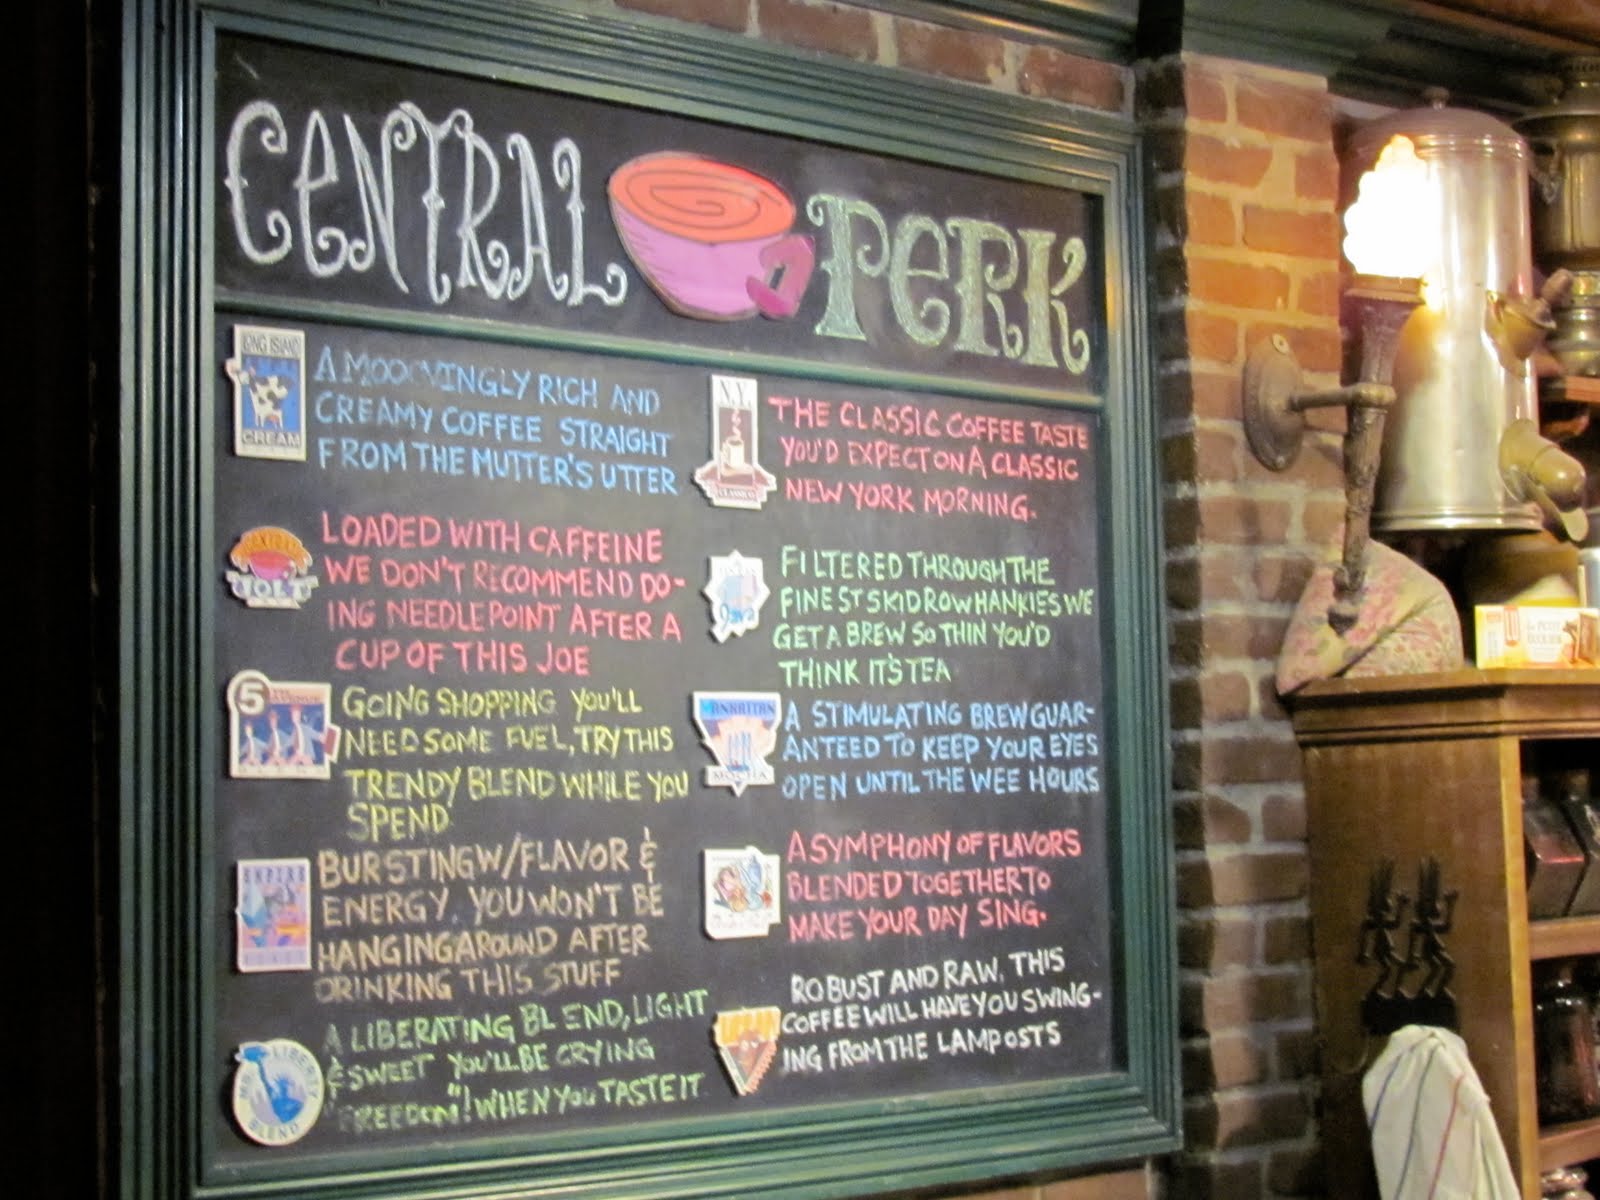 CENTRAL PERK
LONG ISLAND
CREAM
A MOOOVINGLY RICH AND
CREAMY COFFEE STRAIGHT
FROM THE MUTTER'S UTTER
JOLT
LOADED WITH CAFFEINE
WE DON'T RECOMMEND DO-
ING NEEDLEPOINT AFTER A
CUP OF THIS JOE
5
GOING SHOPPING YOU'LL
NEED SOME FUEL, TRY THIS
TRENDY BLEND WHILE YOU
SPEND
EMPIRE
BURSTING W/FLAVOR &
ENERGY. YOU WON'T BE
HANGING AROUND AFTER
DRINKING THIS STUFF
LIBERTY
BLEND
A LIBERATING BLEND, LIGHT
& SWEET YOU'LL BE CRYING
"FREEDOM"! WHEN YOU TASTE IT
N.Y.
CLASSICO
THE CLASSIC COFFEE TASTE
YOU'D EXPECT ON A CLASSIC
NEW YORK MORNING.
Java
FILTERED THROUGH THE
FINEST SKID ROW HANKIES WE
GET A BREW SO THIN YOU'D
THINK IT'S TEA
MANHATTAN
MOCHA
A STIMULATING BREW GUAR-
ANTEED TO KEEP YOUR EYES
OPEN UNTIL THE WEE HOURS
A SYMPHONY OF FLAVORS
BLENDED TOGETHER TO
MAKE YOUR DAY SING.
ROBUST AND RAW, THIS
COFFEE WILL HAVE YOU SWING-
ING FROM THE LAMPOSTS